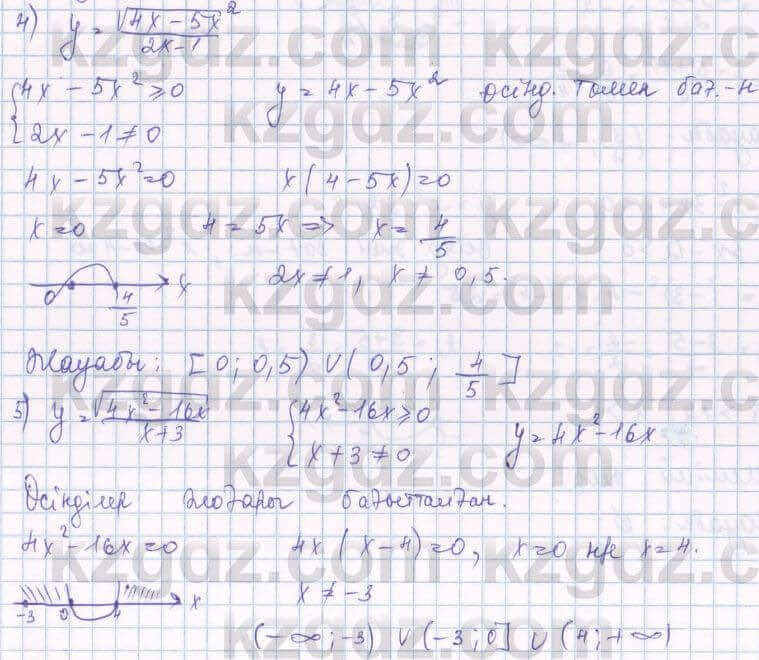 4) y = √(4x − 5x²) / (2x−1)
{4x − 5x² ≥ 0   y = 4x − 5x² өсінд. төмен бағ.-н
{2x − 1 ≠ 0
4x − 5x² = 0   x(4 − 5x) = 0
x = 0   4 = 5x => x = 4/5
0 4/5 x   2x ≠ 1, x ≠ 0,5.
Жауабы: [0; 0,5) ∪ (0,5; 4/5]
5) y = √(4x² − 16x) / (x+3)   {4x² − 16x ≥ 0   y = 4x² − 16x
{x + 3 ≠ 0
Өсінділер жоғары бағытталған.
4x² − 16x = 0   4x(x − 4) = 0, x = 0 нје x = 4.
−3 0 4 x   x ≠ −3
(−∞; −3) ∪ (−3; 0] ∪ (4; +∞)
kzgdz.com